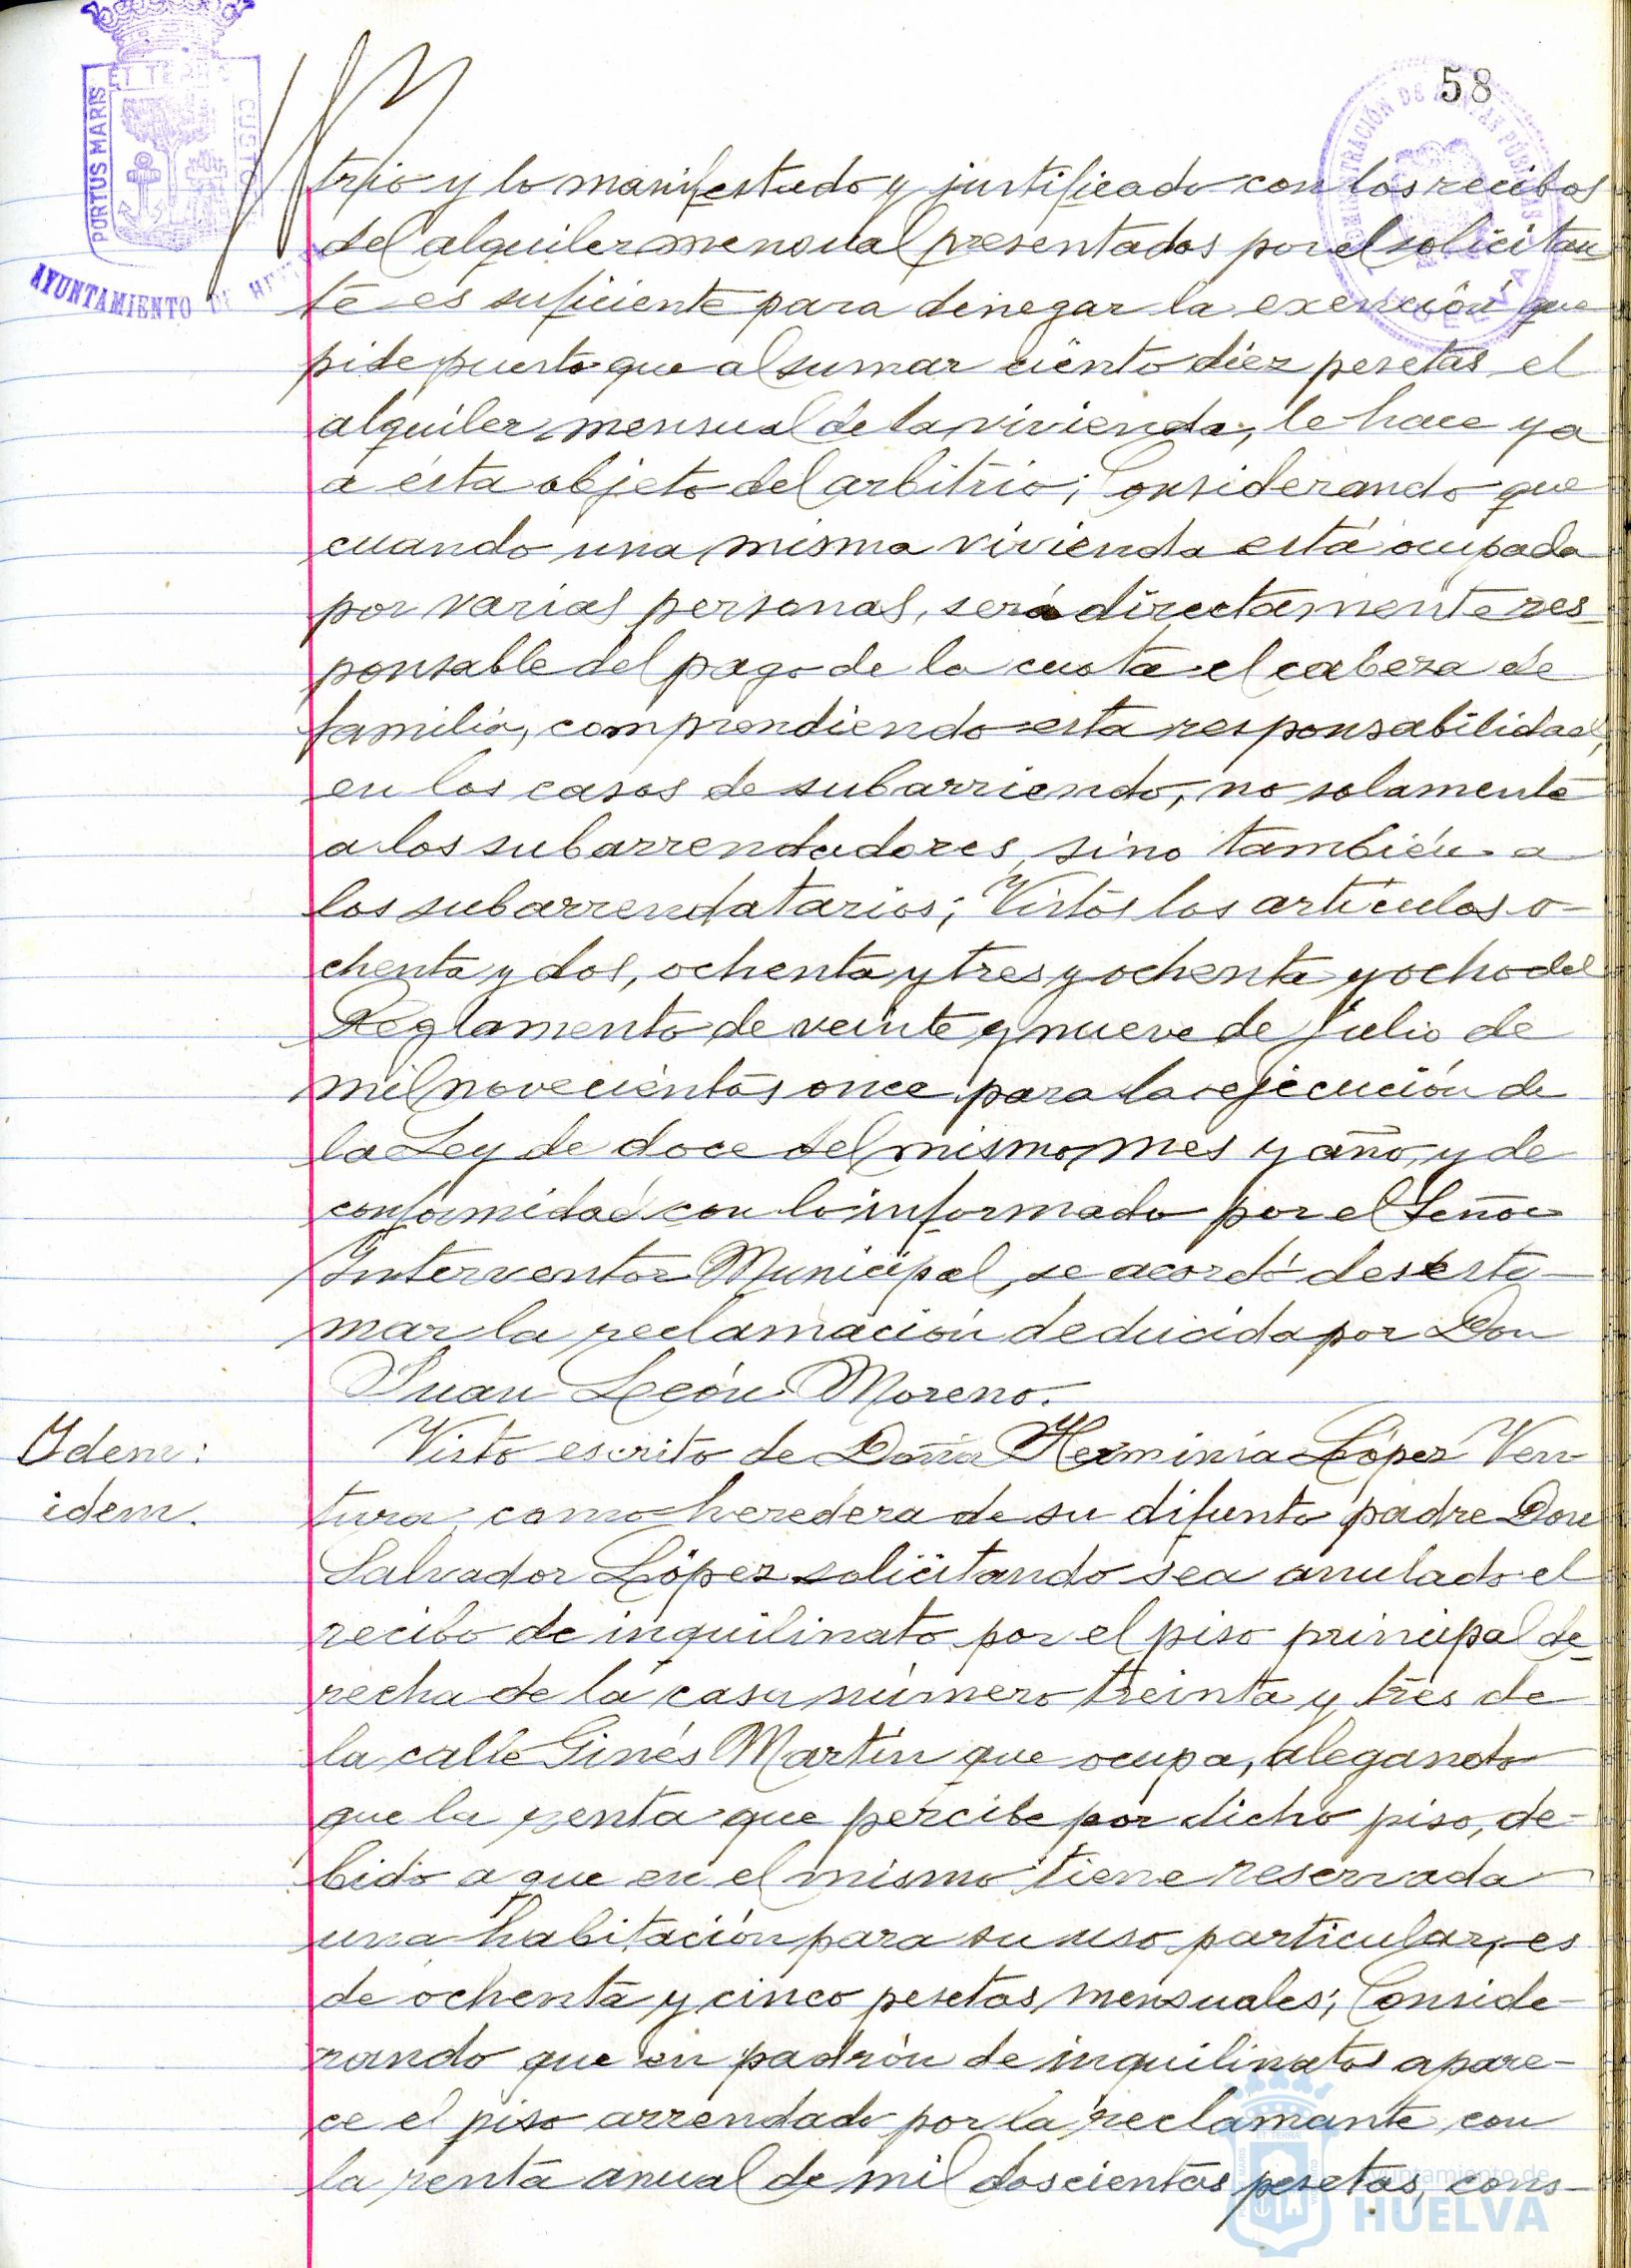 58
PORTUS MARIS ET TERRE CUSTO
AYUNTAMIENTO DE HUE
trio y lo manifestado y justificado con los recibos
del alquiler mensual presentados por el solicitan
te es suficiente para denegar la exención que
pide puesto que al sumar ciento diez pesetas el
alquiler mensual de la vivienda, le hace ya
a ésta objeto del arbitrio; Considerando que
cuando una misma vivienda está ocupada
por varias personas, será directamente res_
ponsable del pago de la cuota el cabeza de
familia, comprendiendo esta responsabilidad,
en los casos de subarriendo, no solamente
a los subarrendadores, sino también a
los subarrendatarios; Vistos los artículos o-
chenta y dos, ochenta y tres y ochenta y ocho del
Reglamento de veinte y nueve de Julio de
mil novecientos once para la ejecución de
la Ley de doce del mismo mes y año, y de
conformidad con lo informado por el Señor
Interventor Municipal, se acordó desesti-
mar la reclamación deducida por Don
Juan León Moreno.
Idem:
idem.
Visto escrito de Doña Herminia López Ven
tura como heredera de su difunto padre Don
Salvador López solicitando sea anulado el
recibo de inquilinato por el piso principal de_
recha de la casa número treinta y tres de
la calle Ginés Martín que ocupa, alegando
que la renta que percibe por dicho piso, de-
bido a que en el mismo tiene reservada
una habitación para su uso particular, es
de ochenta y cinco pesetas mensuales; Conside-
rando que en padrón de inquilinatos apare-
ce el piso arrendado por la reclamante con
la renta anual de mil doscientas pesetas, cons-
Ayuntamiento de
HUELVA